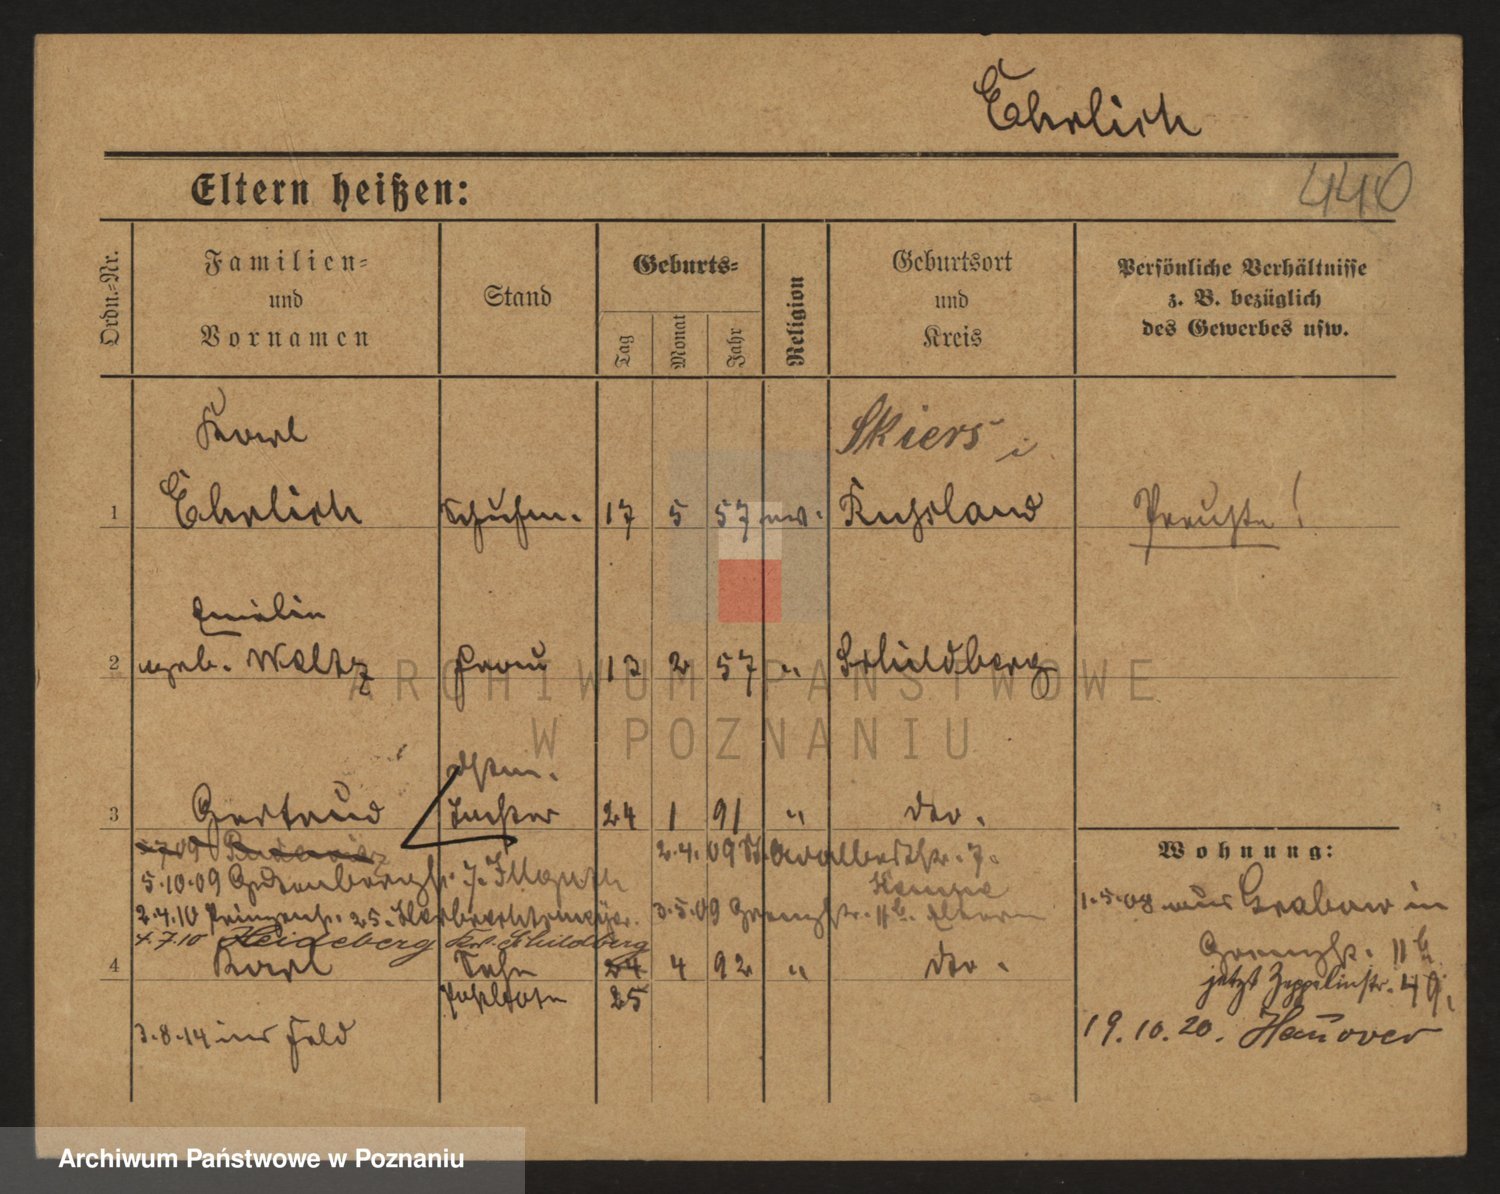 Ehrlich
440
Eltern heißen:
Ordn.-Nr.
Familien- und Vornamen
Stand
Geburts-
Tag
Monat
Jahr
Religion
Geburtsort und Kreis
Persönliche Verhältnisse z. B. bezüglich des Gewerbes usw.
Karl
Skiers i
1 Ehrlich Schuhm. 17 5 57 ev. Russland Preuße!
Emilie
2 geb. Waltz Frau 13 2 57 " Schildberg
3 Gertrud Tochter 24 1 91 " dto.
2.4.09 7.
Wohnung:
5.10.09 Gutenbergstr. 7.
3.5.09 Grenzstr. 11b. Eltern
2.4.10 Prinzenstr. 25.
1.5.08 aus Grabow in
4.7.10 Heideberg Krs. Schildberg
Grenzstr. 11b
4 Karl Sohn 24 4 92 " dto.
jetzt Zeppelinstr. 49.
25
3.8.14 ins Feld
19.10.20. Hanover
ARCHIWUM PAŃSTWOWE
W POZNANIU
Archiwum Państwowe w Poznaniu